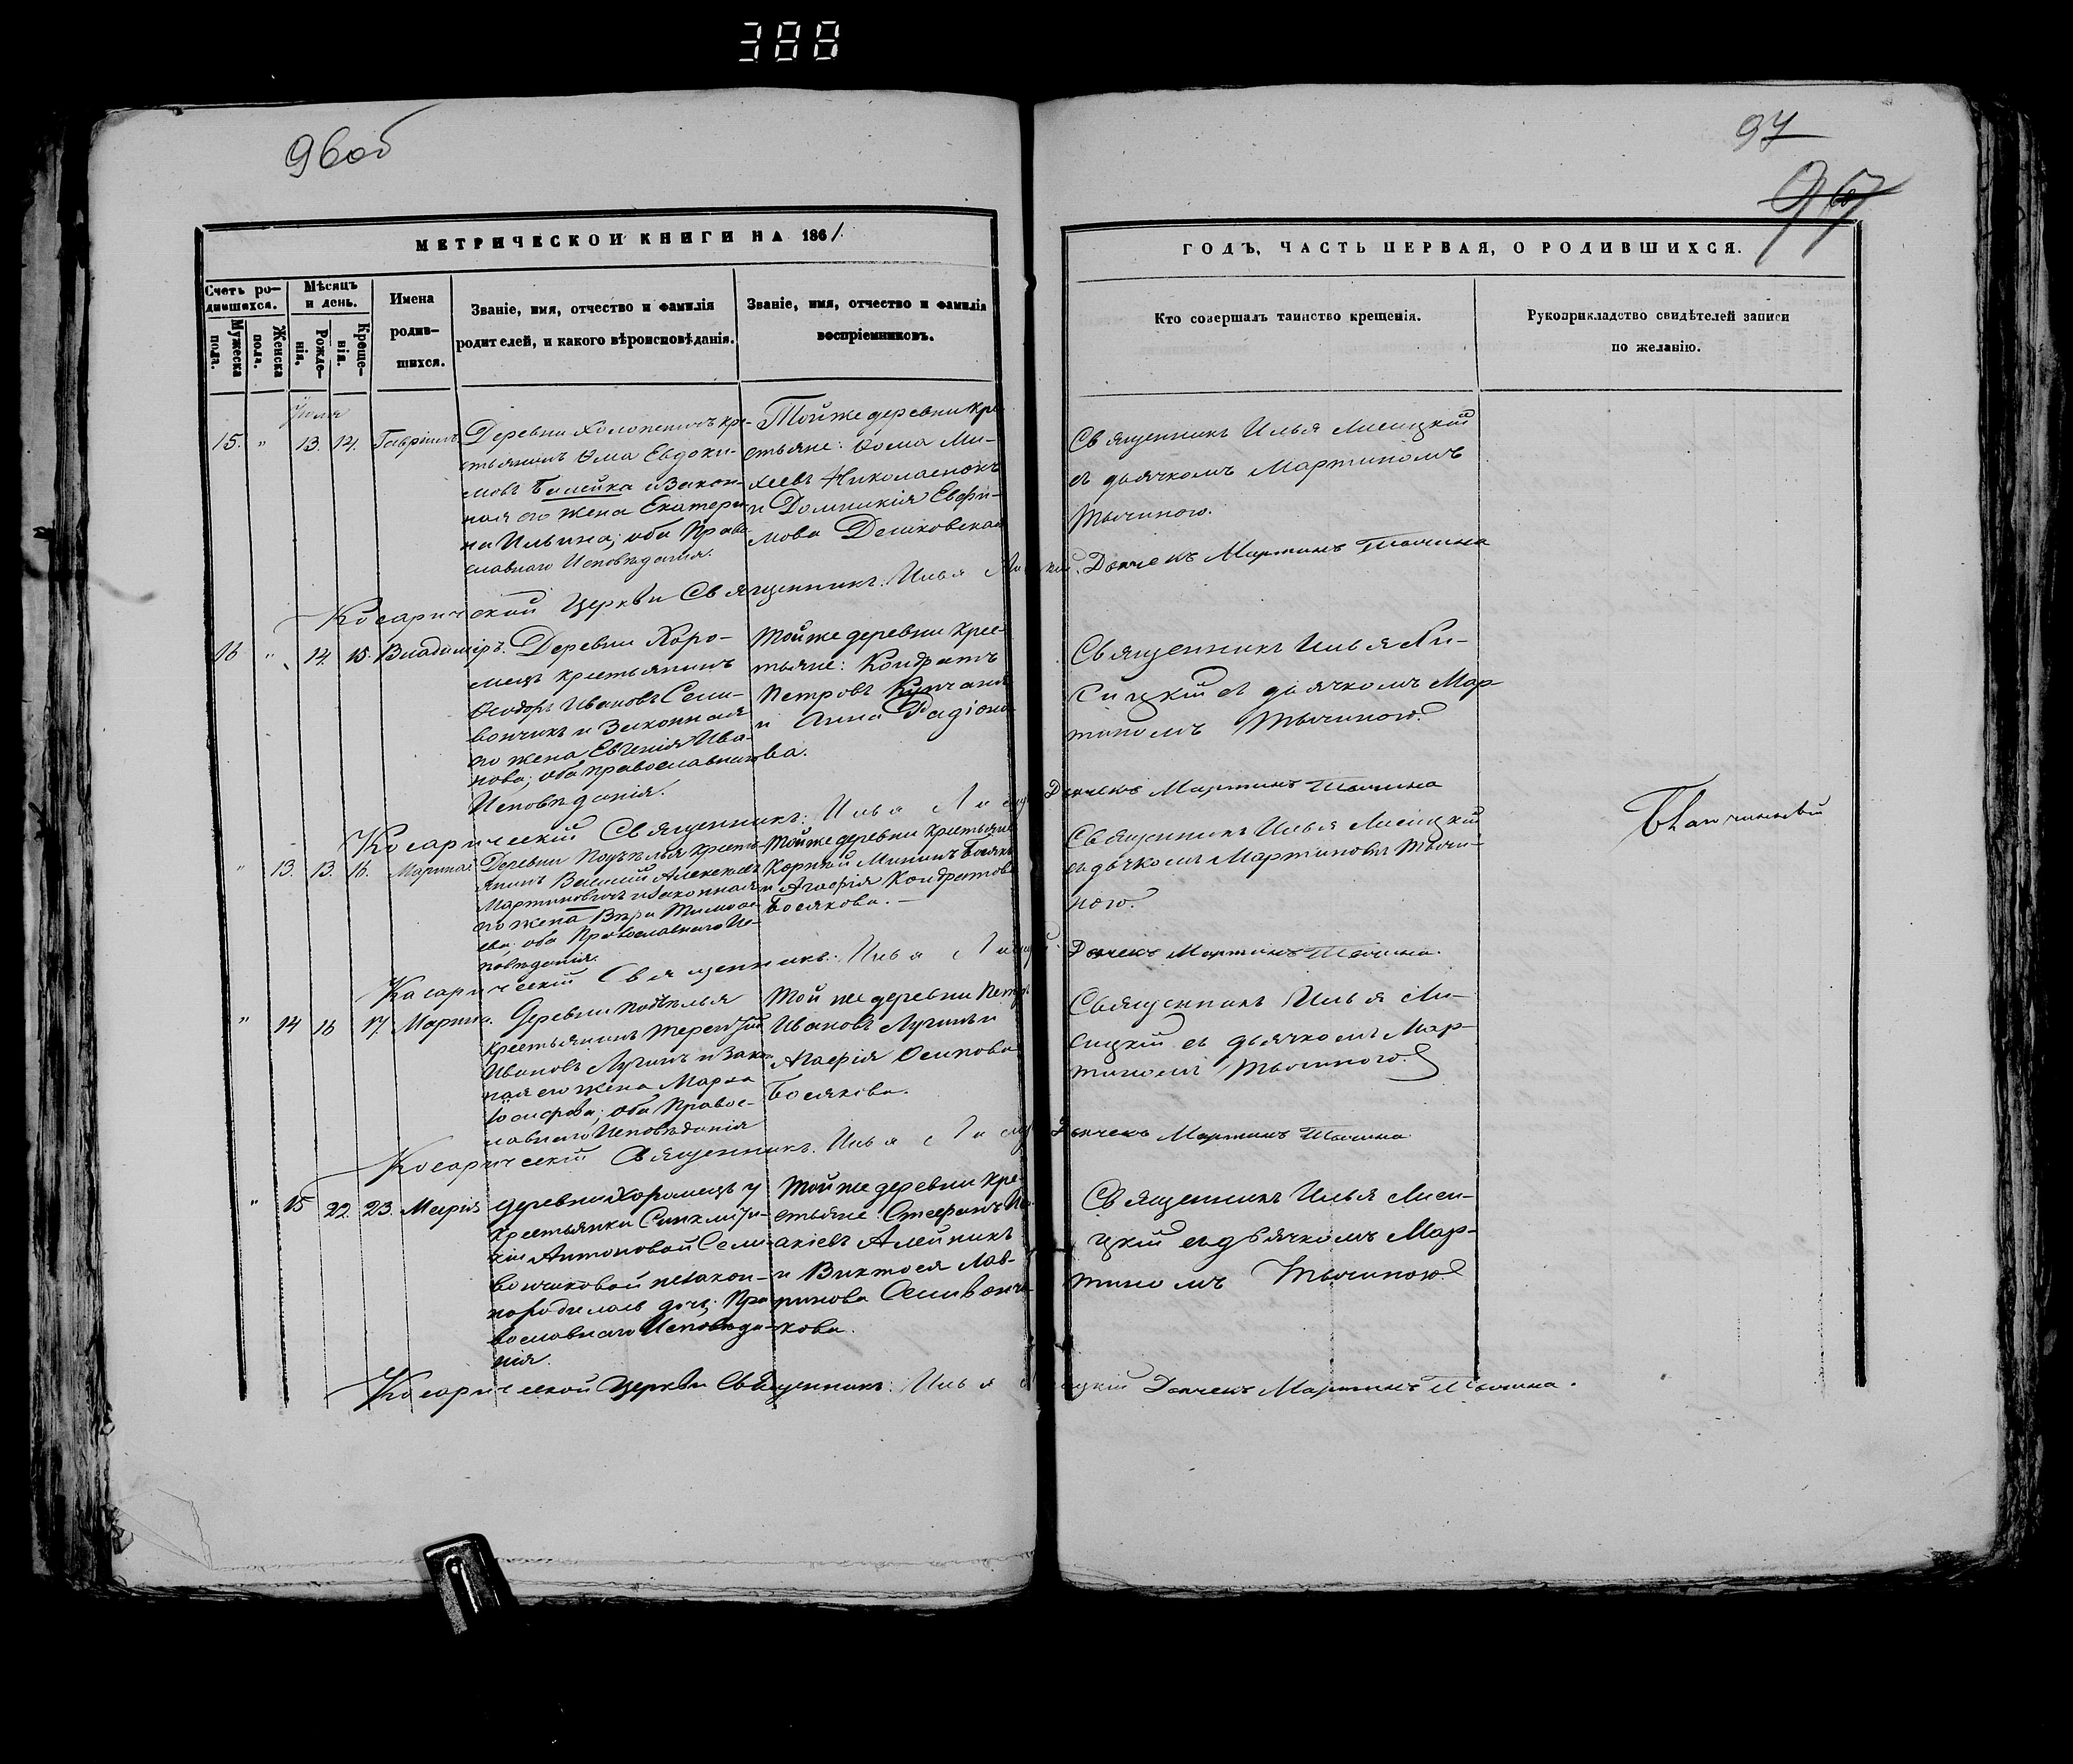 388
96об
97
МЕТРИЧЕСКОЙ КНИГИ НА 1861.
Счетъ ро-
дившихся.
Мужеска
пола.
Женска
пола.
Мѣсяцъ
и день.
Рожде-
нія.
Креще-
нія.
Имена
родив-
шихся.
Званіе, имя, отчество и фамилія
родителей, и какого вѣроисповѣданія.
Званіе, имя, отчество и фамилія
воспріемниковъ.
ГОДЪ, ЧАСТЬ ПЕРВАЯ, О РОДИВШИХСЯ.
Кто совершалъ таинство крещенія.
Рукоприкладство свидѣтелей записи
по желанію.
Іюля
15. " 13. 14. Гавріилъ
Деревни Холопеничъ кре-
стьянинъ Ѳома Евдоки-
мовъ и Закон-
ная его жена Екатери-
на Ильина; оба Право-
славнаго Исповѣданія.
Той же деревни кре-
стьяне: Ѳома Ми-
хеевъ Николаенокъ
и Домникія Евфи-
мова Дешковская
Священникъ Илья Лисицкій
съ дьячкомъ Мартиномъ
Тычиною.
Косаричской Церкви Священникъ: Илья Дьячекъ Мартинъ Тычина
16 " 14. 15. Владиміръ.
Деревни Хоро-
мецъ крестьянинъ
Ѳеодоръ Ивановъ Сели-
вончикъ и Законная
его жена Евгенія Ива-
нова; оба православнаго
Исповѣданія.
Той же деревни крес-
тьяне: Кондратъ
Петровъ Купчаня
и Анна Радіоно-
ва.
Священникъ Илья Ли-
сицкій съ дьячкомъ Мар-
тиномъ Тычиною.
Косаричскій Священникъ: Илья Дьячекъ Мартинъ Тычина
" 13. 13. 16. Марина.
Деревни Подъѣлья крест-
янинъ Василій Алексеевъ
Мартиновичъ и Законная
его жена Вѣра Тимоѳе-
ева; оба Православнаго Ис-
повѣданія.
Той же деревни крестьяне
Корній Мининъ Босякъ
и Агафія Кондратова
Босякова.
Священникъ Илья Лисицкій
съ дьячкомъ Мартиномъ Тычи-
ною.
Косаричскій Священникъ: Илья Дьячекъ Мартинъ Тычина.
" 14 16 17. Марина.
Деревни Подъѣлья
крестьянинъ Терентій
Ивановъ Лучинъ и Закон-
ная его жена Марѳа
Іосифова; оба Правос-
лавнаго Исповѣданія
Той же деревни Петръ
Ивановъ Лучинъ и
Агафія Осипова
Босякова.
Священникъ Илья Ли-
сицкій съ дьячкомъ Мар-
тиномъ Тычиною.
Косаричскій Священникъ. Илья Дьячекъ Мартинъ Тычина.
" 15 22. 23. Марія
Деревни Хоромецъ у
Крестьянки Синклити-
кіи Антоновой Сели-
вончиковой незакон-
но родилась дочь; Пра-
вославнаго Исповѣда-
нія.
Той же деревни Кре-
стьяне: Стефанъ Иса-
акіевъ Алейникъ
и Виктося Лав-
ринова Селивончи-
кова.
Священникъ Илья Лиси-
цкій съ дьячкомъ Мар-
тиномъ Тычиною.
Косаричской Церкви Священникъ: Илья Лисицкій Дьячекъ Мартинъ Тычина.